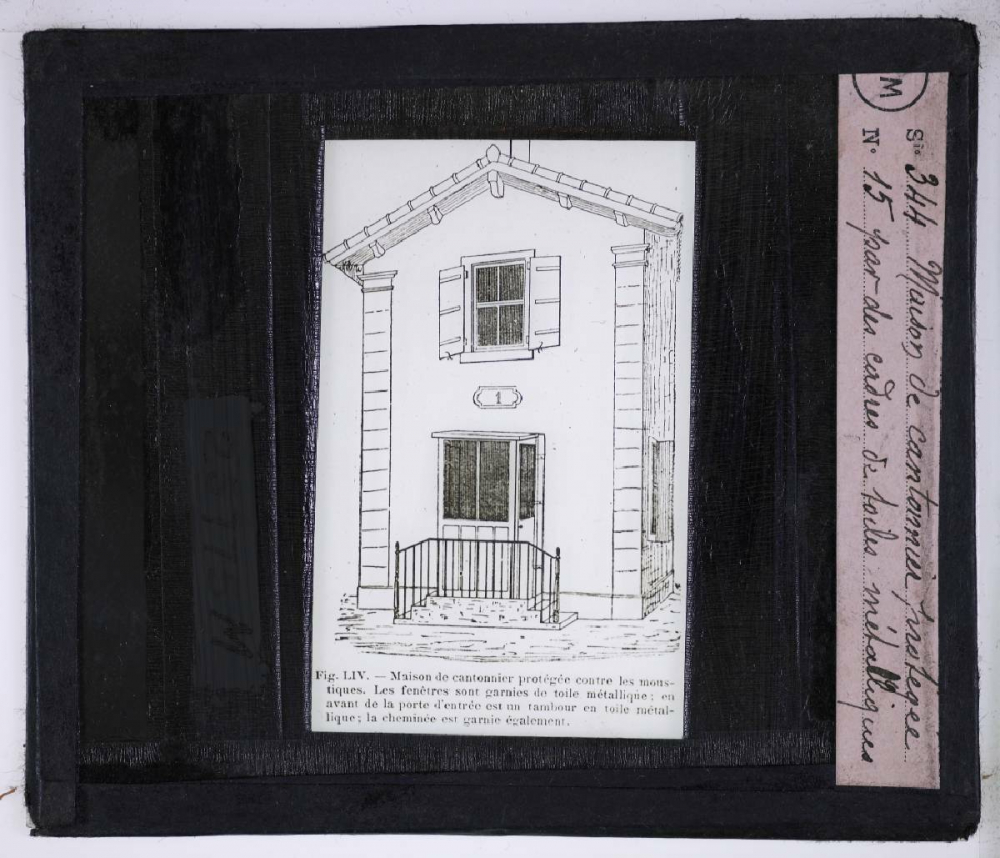 1
Fig. LIV. — Maison de cantonnier protégée contre les mous-
tiques. Les fenêtres sont garnies de toile métallique; en
avant de la porte d'entrée est un tambour en toile métal-
lique; la cheminée est garnie également.
M
Sie 344 Maison de cantonnier protégée
N° 15 par des cadres de toiles métalliques